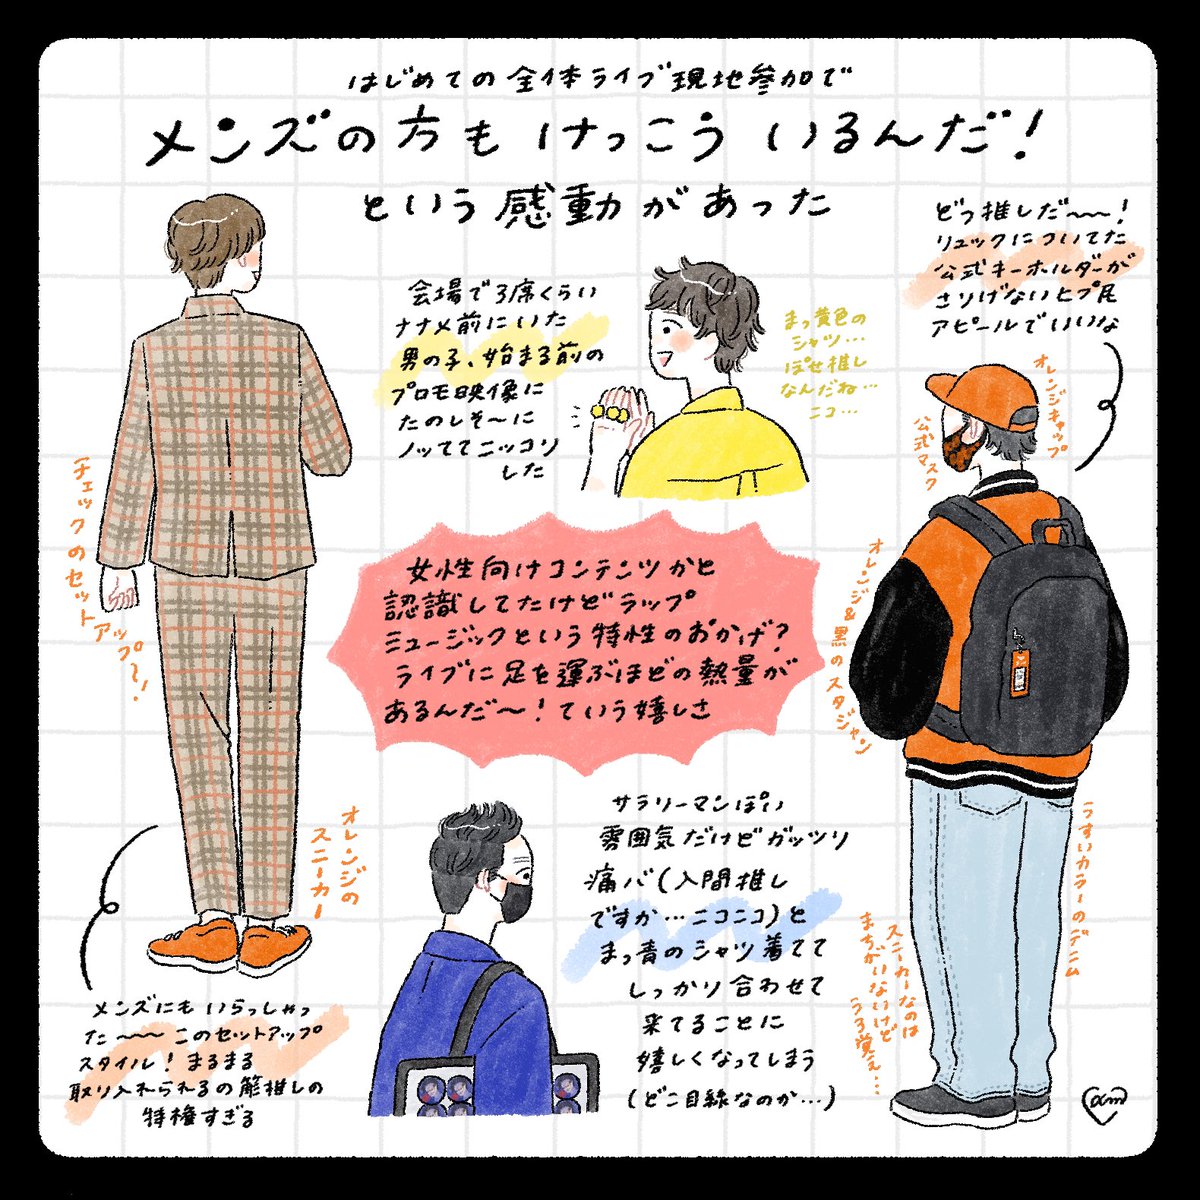 はじめての全体ライブ現地参加で
メンズの方もけっこういるんだ！
という感動があった
どつ推しだ〜〜！
リュックについてた
公式キーホルダーが
さりげないヒプ民
アピールでいいな
会場で3席くらい
ナナメ前にいた
男の子、始まる前の
プロモ映像に
たのしそ〜に
ノッててニッコリ
した
まっ黄色の
シャツ…
ぽせ推し
なんだね…
ニコ…
オレンジキャップ
公式マスク
オレンジ&黒のスタジャン
うすいカラーのデニム
スニーカーなのは
まちがいないけど
うろ覚え…
チェックのセットアップ〜！
オレンジの
スニーカー
女性向けコンテンツかと
認識してたけどラップ
ミュージックという特性のおかげ？
ライブに足を運ぶほどの熱量が
あるんだ〜！ていう嬉しさ
メンズにもいらっしゃっ
た〜〜〜このセットアップ
スタイル！まるまる
取り入れられるの簓推しの
特権すぎる
サラリーマンぽい
雰囲気だけどガッツリ
痛バ(入間推し
ですか…ニコニコ)と
まっ青のシャツ着てて
しっかり合わせて
来てることに
嬉しくなってしまう
(どこ目線なのか…)
am